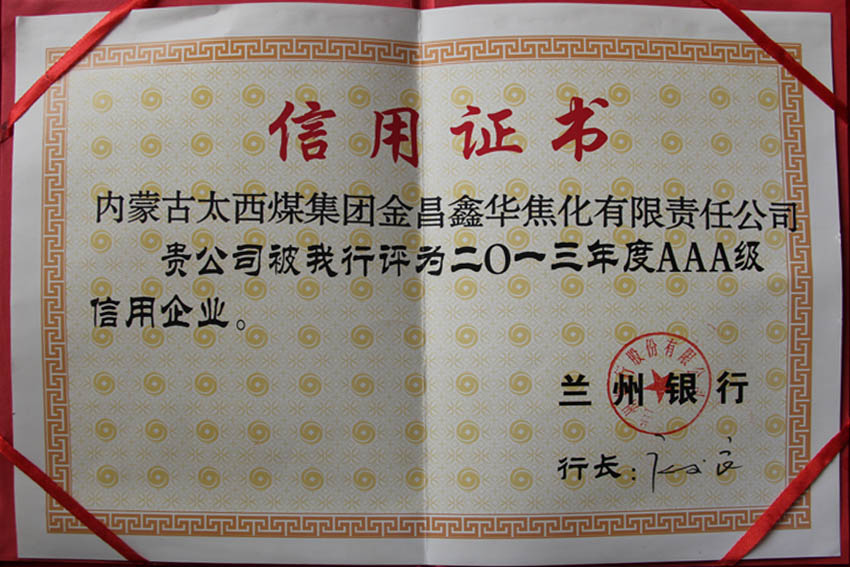 信用证书
内蒙古太西煤集团金昌鑫华焦化有限责任公司
贵公司被我行评为二〇一三年度AAA级
信用企业。
股份有限公
兰州银行
行长：